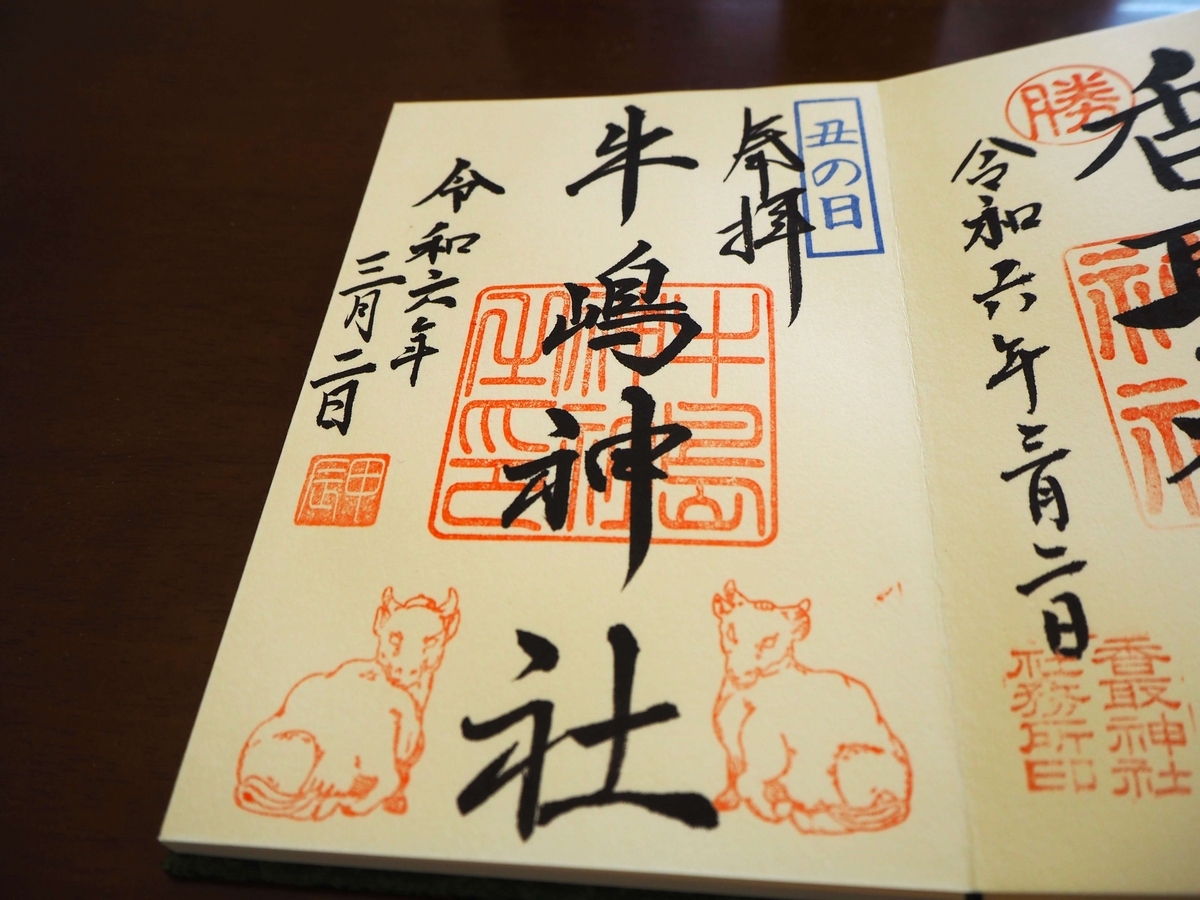 勝
香
令和六年三月二日
香取神社
社務所印
丑の日
奉拝
牛嶋神社
牛島
神社
令和六年
三月二日
神